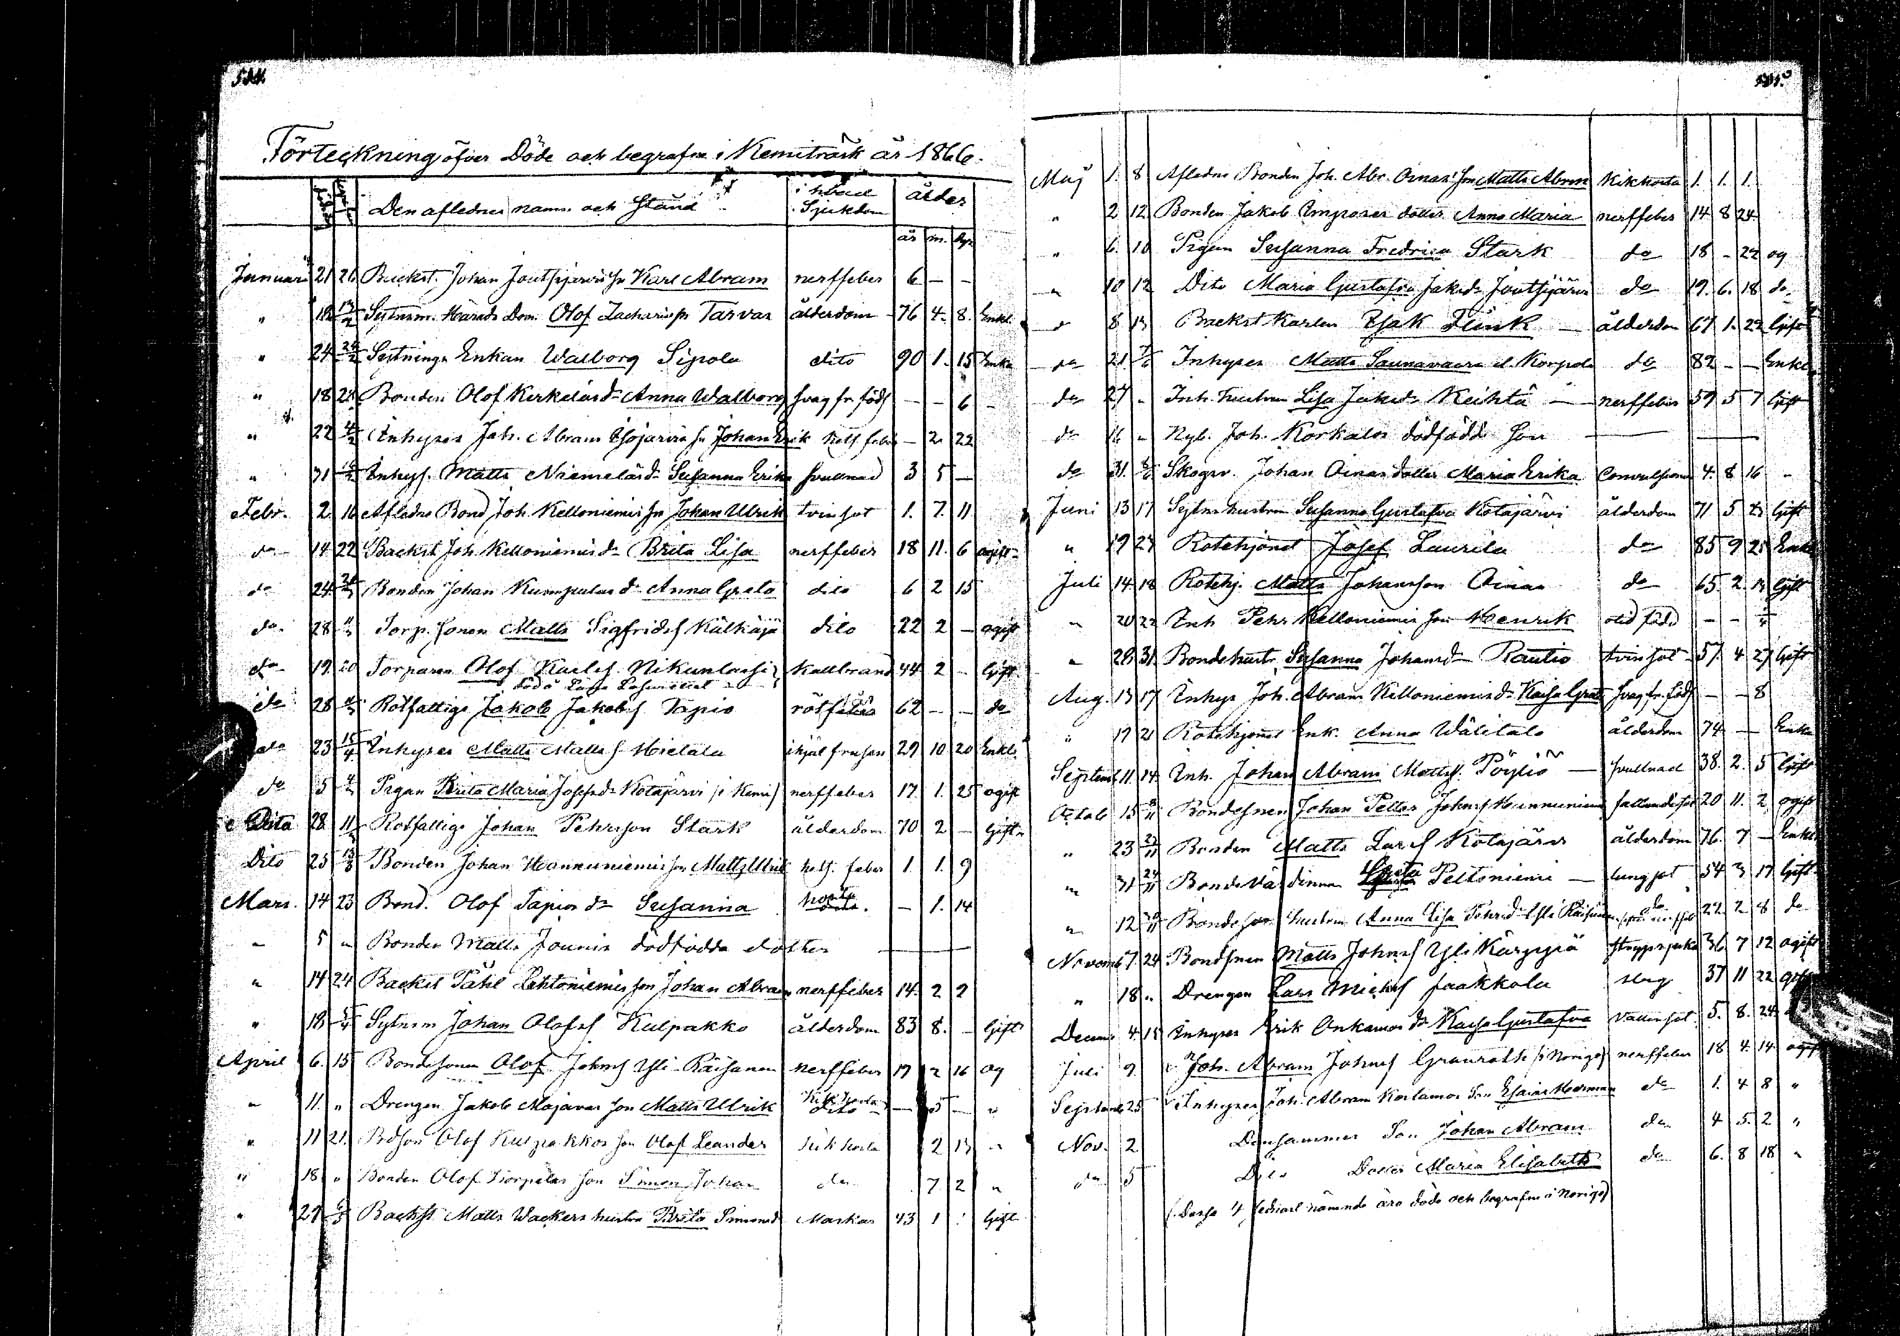 Förteckning öfver Döde och begrafne i Kemiträsk år 1866.
Den aflednes namn och Stånd Sjukdom ålder
år m. dgr
Januari 21 26 Backst. Johan Joutsijärvis sn Karl Abram nerffeber 6 – –
" 18 13/2 Sytnsm. Härads Dom. Olof Zacharisn Tarvas ålderdom 76 4 8 Enkl.
" 24 24/2 Sytninge Enkan Walborg Sipola dito 90 1 15 Enka
" 18 28 Bonden Olof Kerkelas dr Anna Walborg svag fr föds – – 6 –
" 22 4/2 Inhyses Joh. Abram Isojärvis sn Johan Erik hets. feber – 2 22
" 31 Inhys. Matts Niemelas dr Susanna Erika svullnad 3 5 –
Febr. 2 16 Afledne Bond Joh. Kelloniemis sn Johan Ulrik tvinsot 1. 7. 11
do 14 22 Backst Joh. Kelloniemis dr Brita Lisa nerffeber 18 11. 6 ogift
do 24 Bonden Johan Kumpulas dr Anna Greta dito 6 2 15
do 28 Torp. sonen Matts Sigfridss Kälkäjä dito 22 2 – ogift
do 19 20 Torparen Olof Karlss Nikunlassi kallbrand 44 2 – Gift
do 28 Rotfattige Jakob Jakobss Tapio rötfeber 62 – – do
do 23 15/4 Inhyses Matts Matts s. Hietala ihjäl frusen 29 10 20 Enkl.
do 5 Pigan Brita Maria Josefsdr Kotajärvi i Kemi nerffeber 17. 1. 25 ogift
Dito 28 11 Rotfattige Johan Pehrsson Stark ålderdom 70 2 – Gift
Dito 25 13/3 Bonden Johan Hannuniemis son Matts Ulrik hets. feber 1. 1. 9
Mars. 14 23 Bond. Olof Tapios dr Susanna hosta – 1. 14
" 5 " Bonden Matts Jounis dödfödda dotter
" 14 24 Backst Påhl Lehtoniemis son Johan Abram nerffeber 14. 2 2
" 18 Sytnsm Johan Olofss Kulpakko ålderdom 83 8. – Gift
April 6. 15 Bondesonen Olof Johnss Yli-Räisänen nerffeber 17 2 16 og
" 11. " Drengen Jakob Majavas son Matts Ulrik Kikhosta – 5 – "
" 11 21. Bdson Olof Kulpakkos son Olof Leander kikhosta 2 13 "
" 18 " Bonden Olof Korpelas son Simon Johan do 7 2 "
" 27 Backst Matts Wackers hustru Brita Simonsd Maskar 43 1 Gift
Maj 1. 8 Afledne Bonden Joh. Abr. Oinas' son Matts Abram Kikhosta 1. 1. 1.
" 2 12 Bonden Jakob Imporas dotter Anna Maria nerffeber 14 8 24
" 6 10 Pigan Susanna Fredrica Stark do 18 – 22 og
" 10 12 Dito Maria Gustafva Jakobsd Joutsijärvi do 19. 6. 18 do
" 8 13 Backst Karlen Isak Flink – ålderdom 67 1. 22 Gift
do 21 Inhyses Matts Saunavaara el. Korpela do 82 – – Enkl.
do 27 " Inh. hustrun Lisa Jakobsdr Keihtä – nerffeber 59 5 7 Gift
do 16 " Nyb. Joh. Korkalos dödfödde son
do 31. Skogsv. Johan Oinas dotter Maria Erika Convulsioner 4. 8 16 –
Juni 13 17 Sytns hustrun Susanna Gustafva Kotajärvi ålderdom 71 5 23 Gift
" 19 27 Rotehjonet Josef Laurila do 85 9 25 Enkl
Juli 14 18 Rotehj. Matts Johansson Oinas do 65 2 13 Gift
" 20 22 Inh Pehr Kelloniemis son Henrik – –
" 28 31. Bondehustr. Susanna Johansdr Rautio tvinsot 57. 4 27 Gift
Aug. 13 17 Inhys Joh. Abram Kelloniemis dr Kaisa Greta svag fr. föds – – 8
" 17 21 Rotehjonet Enk. Anna Wälitalo ålderdom 74 – Enka
Septemb. 11. 14. Inh. Johan Abram Mattss. Pöyliö – svullnad 38. 2. 5 Gift
Octob 15 Bondesonen Johan Petter Johnss Hannuniemi fallandesot 20 11. 2 ogift
" 23 Bonden Matts Larss Kotajärvi ålderdom 76. 7 – Enkl
" 31 Bonde Värdinnan Greta Peltoniemi – lungsot 54 3 17 Gift
" 12 Bondeson hustrun Anna Lisa Pehrsd Yli Räisänen 22. 2 8 do
Novemb 7. 24 Bondsonen Matts Johnss Yli Kärppä strypsjuka 36 7 12 ogift
" 18 " Drengen Lars Michss Jaakkola slag 37 11 22 gift
Decemb 4. 15 Inhyses Erik Onkamos dr Kajsa Gustafva Vattusot. 5. 8. 24
Juli 9 Joh. Abram Johnss Granroth (i Norige) nerffeber 18 4. 14 ogift
Septemb. 25 Inhyses Joh. Abram Karlamos son Esaias Hedman do 1. 4 8 "
Nov. 2 Densammes Son Johan Abram do 4 5. 2 "
do 5 Dito Dotter Maria Elisabeth do 6. 8 18 "
(Desse 4 sedinst nämnde äro döde och begrafne i Norige)